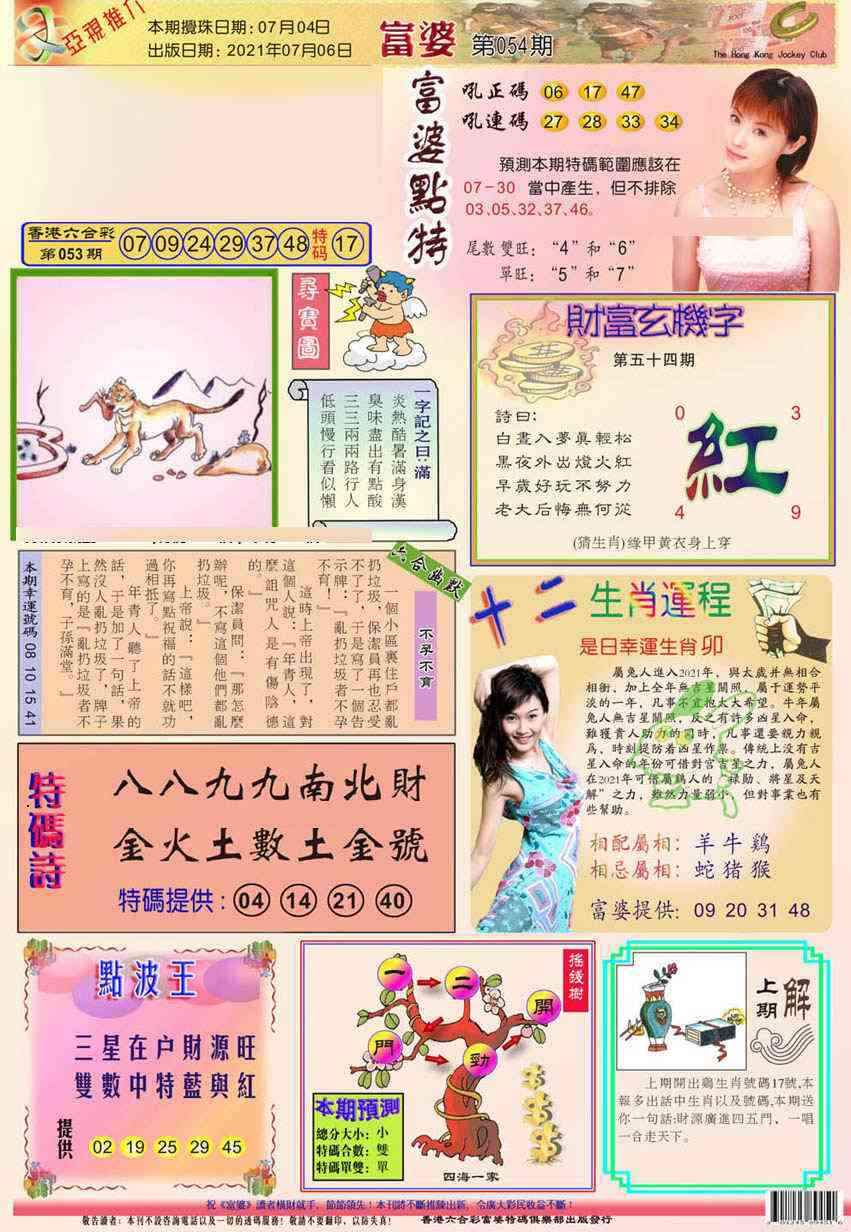 亞視推介
本期攪珠日期:07月04日
出版日期:2021年07月06日
富婆 第054期
The Hong Kong Jockey Club
富婆點特
吼正碼 06 17 47
吼連碼 27 28 33 34
預測本期特碼範圍應該在
07-30 當中產生，但不排除
03、05、32、37、46。
尾數雙旺："4"和"6"
單旺："5"和"7"
香港六合彩
第053期
07 09 24 29 37 48 特码 17
尋寶圖
一字記之曰:滿
炎熱酷暑滿身漢
臭味盡出有點酸
三三兩兩路行人
低頭慢行看似懶
財富玄機字
第五十四期
詩曰:
白晝入夢真輕松
黑夜外出燈火紅
早歲好玩不努力
老大后悔無何從
0 3
紅
4 9
(猜生肖)綠甲黃衣身上穿
六合幽默
不孕不育
一個小區裏住戶都亂
扔垃圾，保潔員再也忍受
不了了，于是寫了一個告
示牌：『亂扔垃圾者不孕
不育！』
這時上帝出現了，對
這個人說：『年青人，這
麼詛咒人是有傷陰德
的。』
保潔員問：『那怎麼
辦呢，不寫這個他們都亂
扔垃圾。』
上帝說：『這樣吧，
你再寫點祝福的話不就功
過相抵了。』
年青人聽了上帝的
話，于是加了一句話，果
然沒人亂扔垃圾了，牌子
上寫的是『亂扔垃圾者不
孕不育，子孫滿堂。』
本期幸運號碼 08 10 15 41
十二生肖運程
是日幸運生肖 卯
屬兔人進入2021年，與太歲并無相合
相衝，加上全年無吉星關照，屬于運勢平
淡的一年，凡事不宜抱太大希望。牛年屬
兔人無吉星關照，反之有許多凶星入命，
難獲貴人助力的同時，凡事還要親力親
爲，時刻提防着凶星作祟。傳統上没有吉
星入命的年份可借對宮吉星之力，屬兔人
在2021年可借屬鷄人的"禄勛、將星及天
解"之力，雖然力量弱小，但對事業也有
些幫助。
相配屬相：羊牛鷄
相忌屬相：蛇猪猴
富婆提供：09 20 31 48
特碼詩
八八九九南北財
金火土數土金號
特碼提供：04 14 21 40
點波王
三星在户財源旺
雙數中特藍與紅
提供 02 19 25 29 45
搖錢樹
一 二 開 門 勁
本期預測
總分大小：小
特碼合數：雙
特碼單雙：單
四海一家
上期解
上期開出鷄生肖號碼17號,本
報多出話中生肖以及號碼,本期送
你一句話:財源廣進四五門，一唱
一合走天下。
祝《富婆》讀者橫財就手，節節領先！本刊將不斷推陳出新，令廣大彩民收益不斷！
敬告讀者：本刊不設咨詢電話以及一切的透碼服務！敬請不要翻印，以防失真！ 香港六合彩富婆特碼俱樂部出版發行